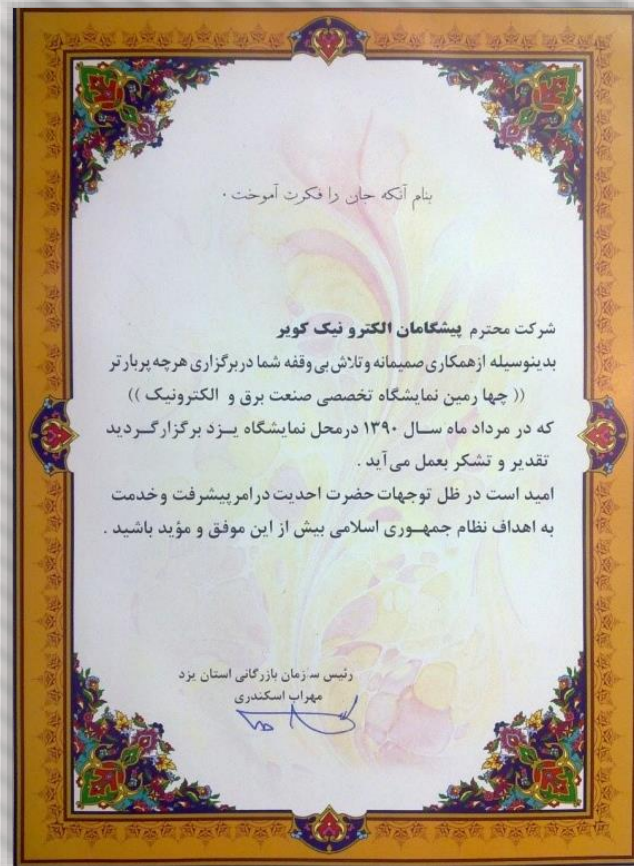 بنام آنکه جان را فکرت آموخت .
شرکت محترم پیشگامان الکترو نیک کویر
بدینوسیله ازهمکاری صمیمانه وتلاش بی وقفه شما دربرگزاری هرچه پربارتر
(( چها رمین نمایشگاه تخصصی صنعت برق و الکترونیک ))
که در مرداد ماه ســال ۱۳۹۰ درمحل نمایشگاه یــزد برگزارگــردید
تقدیر و تشکر بعمل می آید .
امید است در ظل توجهات حضرت احدیت درامرپیشرفت وخدمت
به اهداف نظام جمهــوری اسلامی بیش از این موفق و مؤید باشید .
رئیس سـ زمان بازرگانی استان یزد
مهراب اسکندری